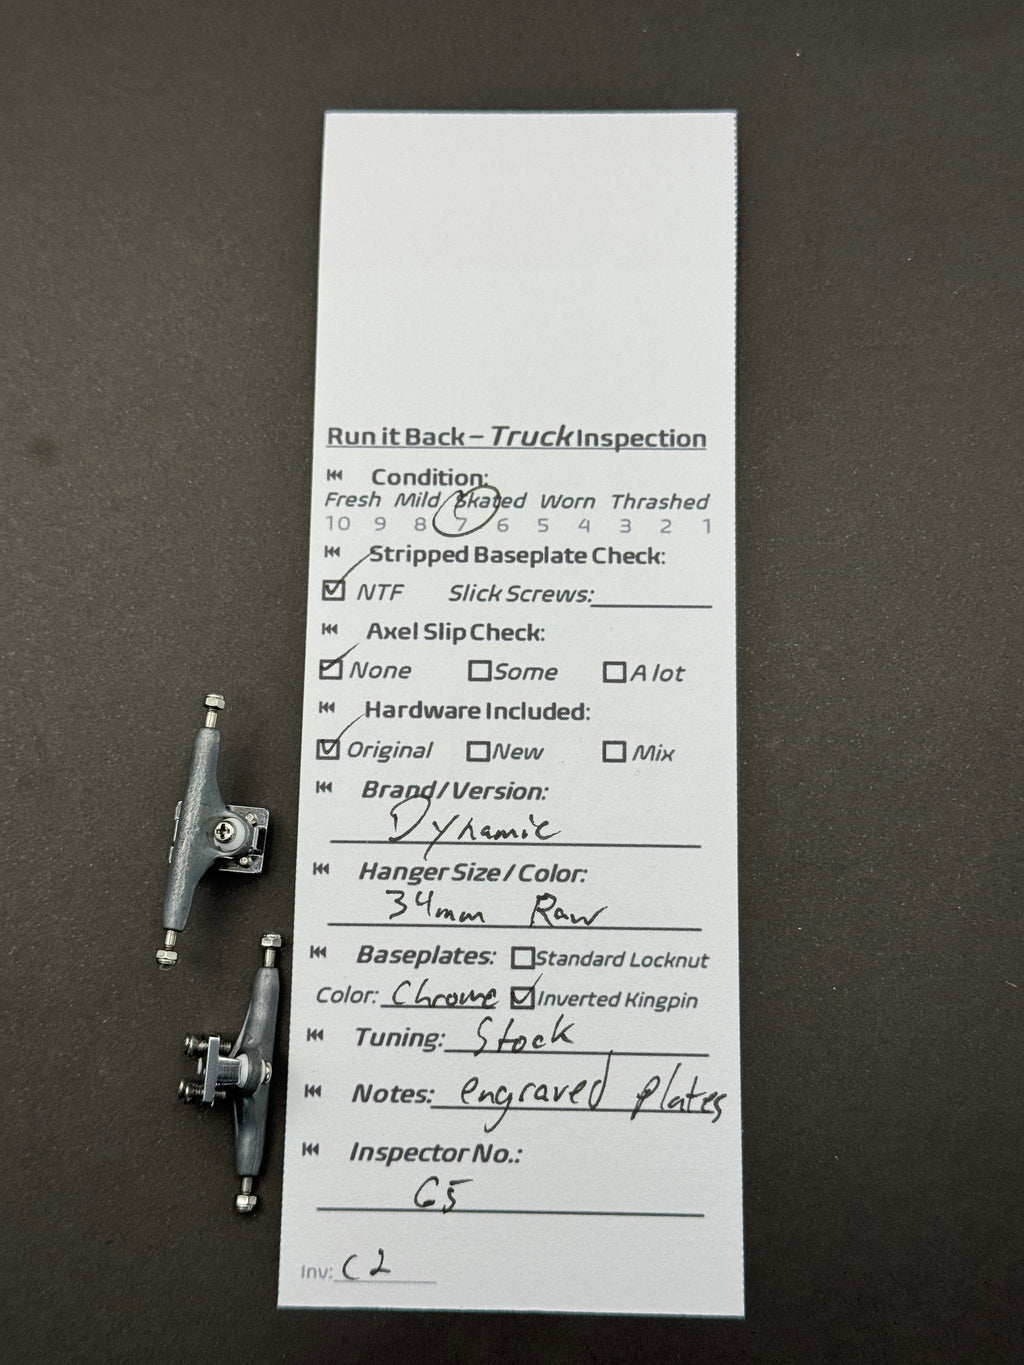 Run it Back – Truck Inspection
Condition:
Fresh Mild Skated Worn Thrashed
10 9 8 7 6 5 4 3 2 1
Stripped Baseplate Check:
NTF Slick Screws:
Axel Slip Check:
None Some A lot
Hardware Included:
Original New Mix
Brand/Version:
Dynamic
Hanger Size/Color:
34mm Raw
Baseplates: Standard Locknut
Color: Chrome Inverted Kingpin
Tuning: Stock
Notes: engraved plates
Inspector No.:
G5
Inv: C2